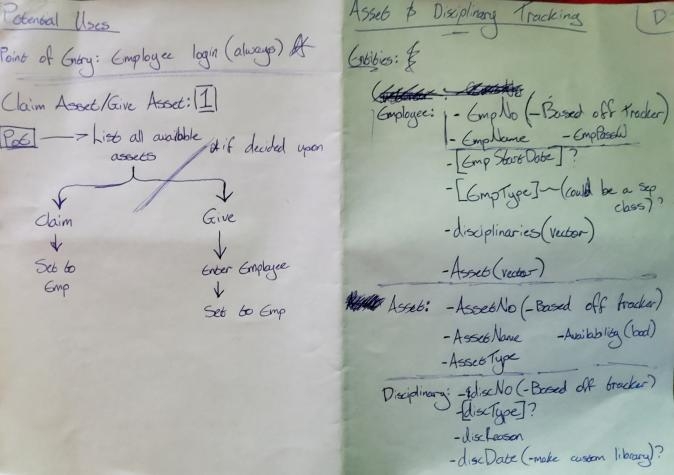 Potential Uses
Point of Entry: Employee login (always)
Claim Asset/Give Asset: 1
PoE → List all available assets
*if decided upon
Claim
Give
Set to Emp
Enter Employee
Set to Emp
Asset & Disciplinary Tracking
D
Entities:
Employee: - EmpNo (-Based off tracker)
- EmpName - EmpPassW
- [EmpStartDate]?
- [EmpType] ~ (could be a sep class)?
- disciplinaries (vector)
- Asset (vector)
Asset: - AssetNo (-Based off tracker)
- AssetName - Availability (bool)
- AssetType
Disciplinary: - discNo (-Based off tracker)
- [discType]?
- discReason
- discDate (-make custom library)?